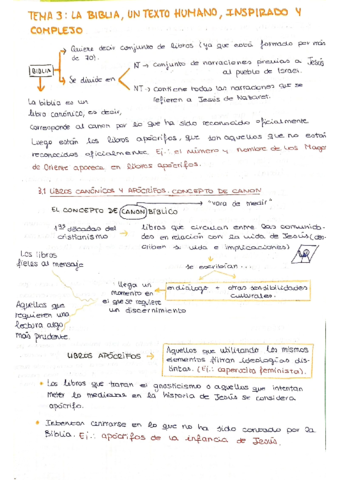 TEMA 3: LA BIBLIA, UN TEXTO HUMANO, INSPIRADO Y
COMPLEJO
Quiere decir conjunto de libros (ya que está formado por más
de 70).
BIBLIA
NT → conjunto de narraciones previas a Jesús
al pueblo de Israel.
Se divide en
NT → contiene todas las narraciones que se
refieren a Jesús de Nazaret.
La biblia es un
libro canónico, es decir,
corresponde al canon por lo que ha sido reconocida oficialmente.
Luego están los libros apócrifos, que son aquellos que no están
reconocidos oficialmente. Ej.: el número y nombre de los Magos
de Oriente aparece en libros apócrifos.
3.1 LIBROS CANÓNICOS Y APÓCRIFOS. CONCEPTO DE CANON
"vara de medir"
EL CONCEPTO DE CANON BÍBLICO
1ªs décadas del
cristianismo
libros que circulan entre las comunida-
des en relación con la vida de Jesús (des-
criben su vida e implicaciones)
Los libros
fieles al mensaje
se escribían ...
llega un
momento en
el que se requiere
un discernimiento
en diálogo → otras sensibilidades
culturales.
Aquellos que
requieren una
lectura algo
más prudente.
LIBROS APÓCRIFOS
Aquellos que utilizando los mismos
elementos filtran ideologías dis-
tintas. (Ej.: caperucita feminista).
• Los libros que traten el gnosticismo o aquellos que intentan
meter lo mediano en la historia de Jesús se considera
apócrifo.
• Intentan centrarse en lo que no ha sido contado por la
Biblia. Ej.: apócrifos de la infancia de Jesús.